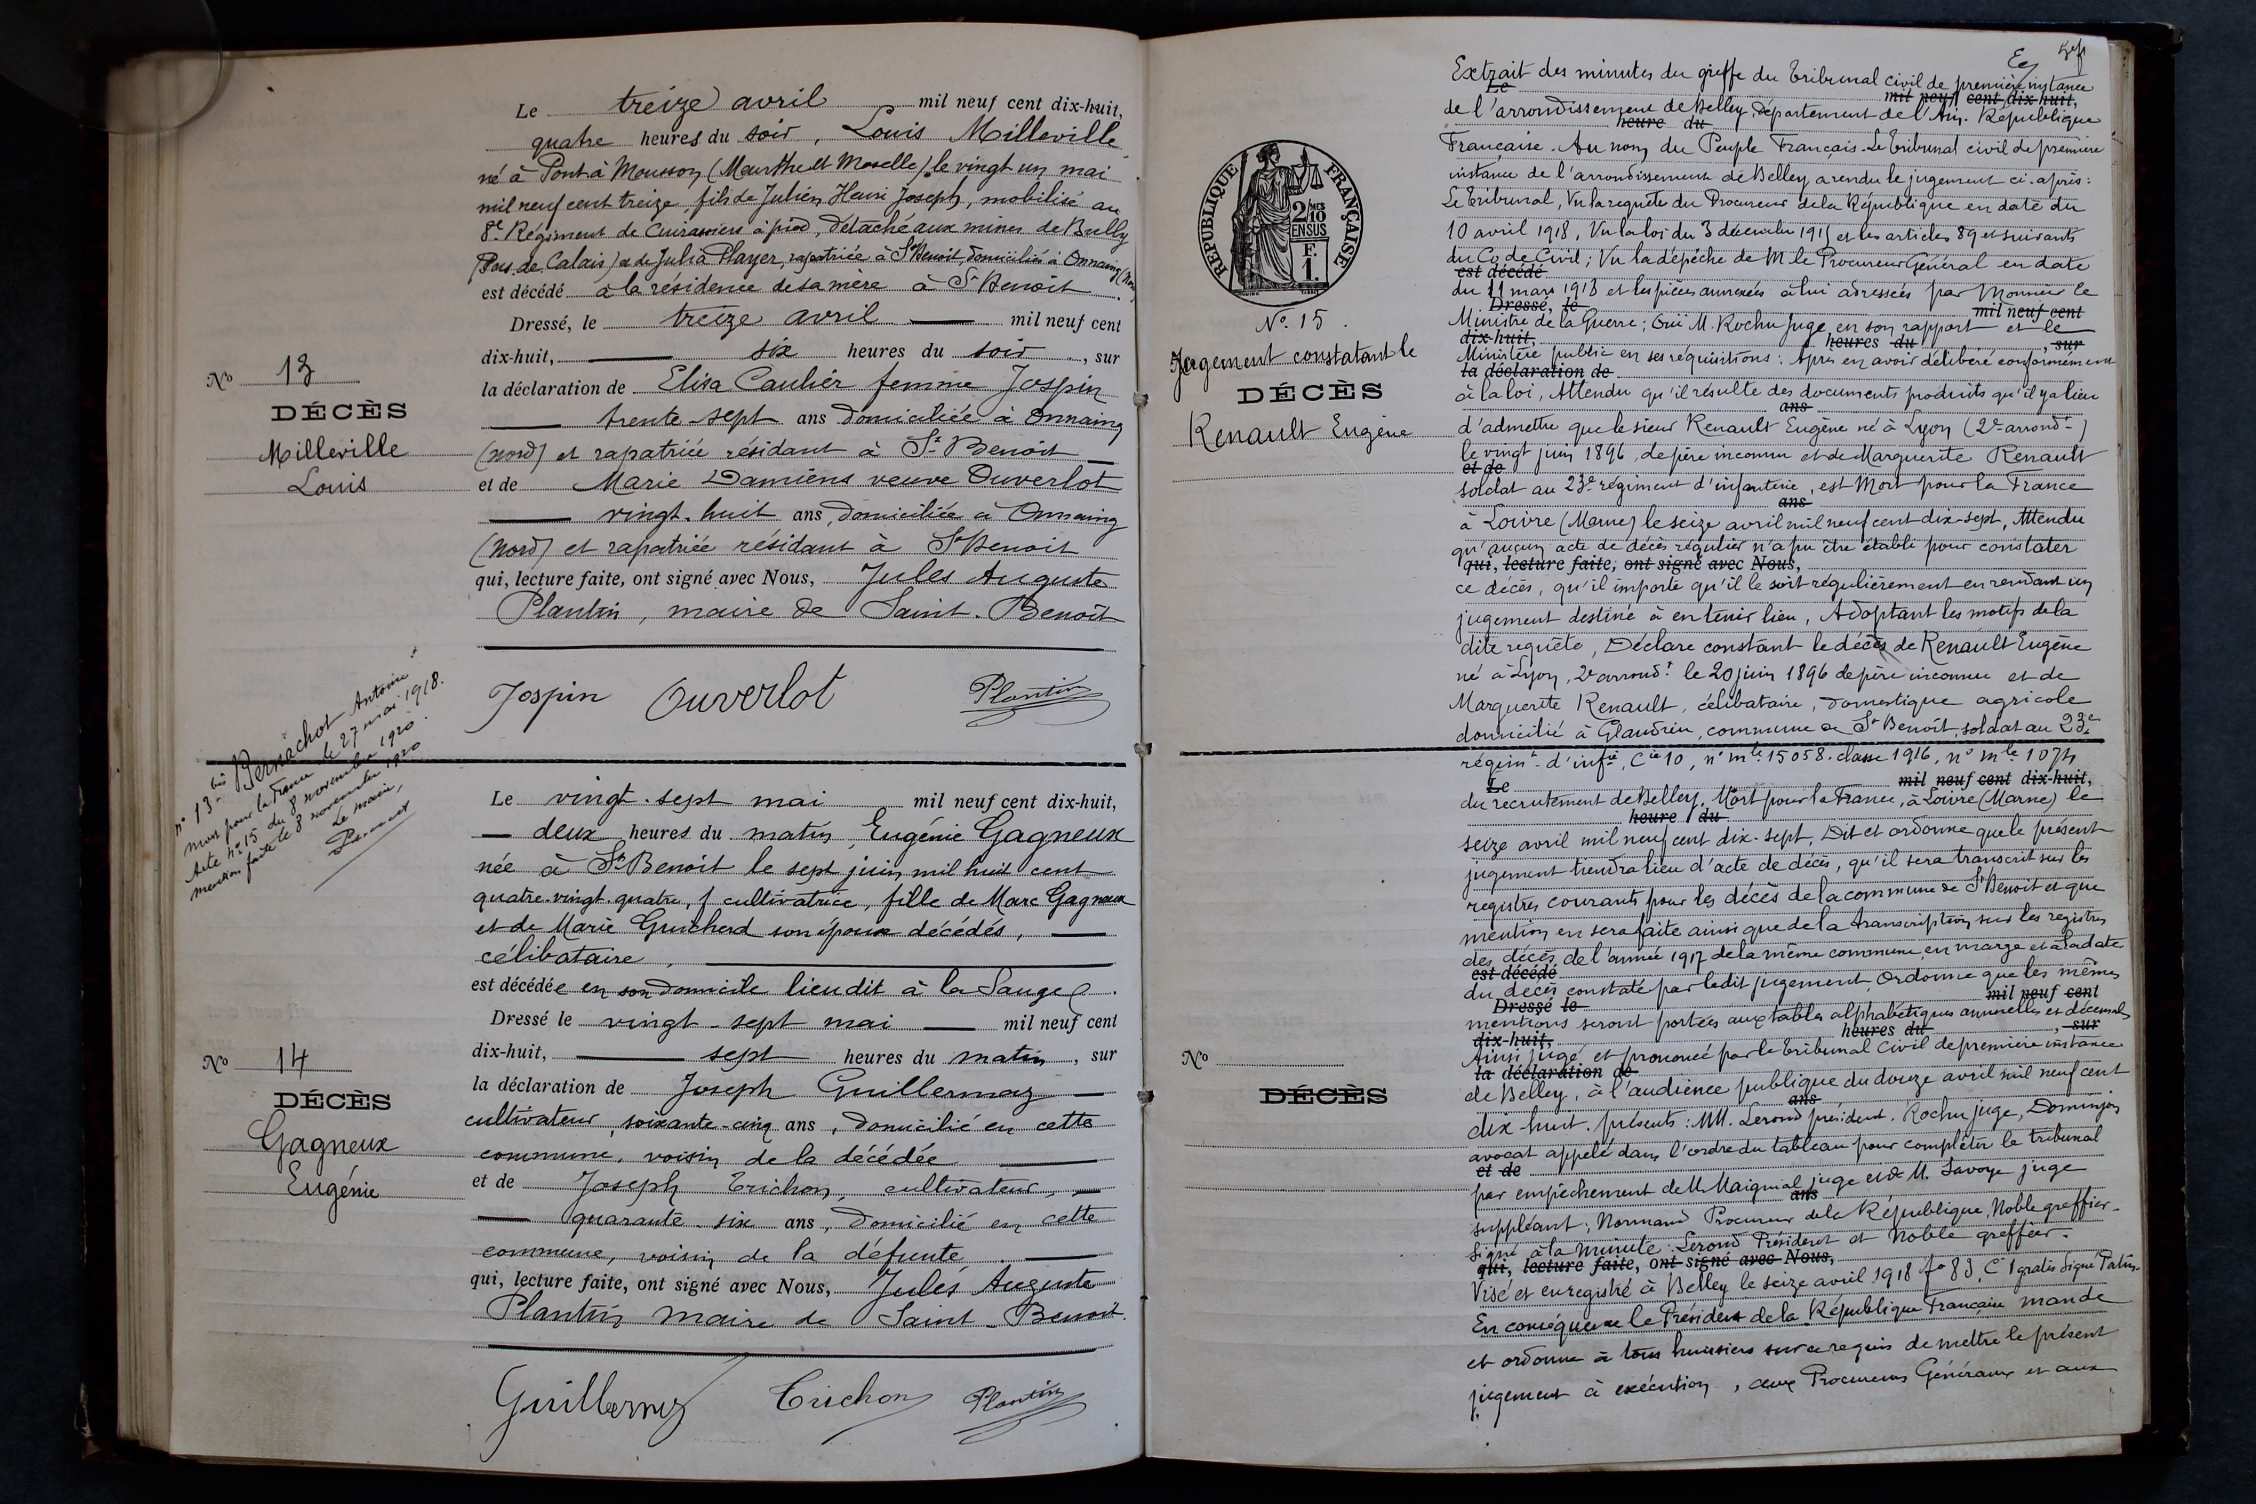 Le treize avril mil neuf cent dix-huit,
quatre heures du soir, Louis Milleville
né à Pont à Mousson (Meurthe et Moselle) le vingt un mai
mil neuf cent treize, fils de Julien Henri Joseph, mobilisé au
8e Régiment de Cuirassiers à pied, détaché aux mines de Bully
(Pas de Calais) et de Julia Player, rapatriée à St Benoit, domiciliés à Onnaing (Nord)
est décédé à la résidence de sa mère à St Benoit.
Dressé, le treize avril mil neuf cent
dix-huit, six heures du soir, sur
la déclaration de Elisa Caulier femme Jospin
trente-sept ans domiciliée à Onnaing
(Nord) et rapatriée résidant à St Benoit
et de Marie Damiens veuve Duverlot
vingt-huit ans, domiciliée à Onnaing
(Nord) et rapatriée résidant à St Benoit
qui, lecture faite, ont signé avec Nous, Jules Auguste
Plantin, maire de Saint-Benoit
Jospin Duverlot Plantin
No 13
DÉCÈS
Milleville
Louis
n° 13 bis Bernachot Antoine
mort pour la France le 27 mai 1918.
Acte n° 15 du 8 novembre 1920.
mention faite le 8 novembre 1920
Le maire,
Le vingt-sept mai mil neuf cent dix-huit,
deux heures du matin, Eugénie Gagneux
née à St Benoit le sept juin mil huit cent
quatre-vingt-quatre, cultivatrice, fille de Marc Gagneux
et de Marie Guicherd son épouse décédés,
célibataire,
est décédée en son domicile lieu dit à la Sauge.
Dressé le vingt-sept mai mil neuf cent
dix-huit, sept heures du matin, sur
la déclaration de Joseph Guillermaz
cultivateur, soixante-cinq ans, domicilié en cette
commune, voisin de la décédée
et de Joseph Trichon, cultivateur,
quarante-six ans, domicilié en cette
commune, voisin de la défunte
qui, lecture faite, ont signé avec Nous, Jules Auguste
Plantin maire de Saint-Benoit.
Guillermaz Trichon Plantin
No 14
DÉCÈS
Gagneux
Eugénie
RÉPUBLIQUE FRANÇAISE
2/10 MES EN SUS
F. 1.
No. 15.
Jugement constatant le
DÉCÈS
Renault Eugène
Extrait des minutes du greffe du Tribunal civil de première instance
Le mil neuf cent dix-huit,
de l'arrondissement de Belley, Département de l'Ain. République
heure du
Française. Au nom du Peuple Français. Le Tribunal civil de première
instance de l'arrondissement de Belley a rendu le jugement ci-après:
Le Tribunal, Vu la requête du Procureur de la République en date du
10 avril 1918, Vu la loi du 3 décembre 1915 et les articles 89 et suivants
du Code Civil; Vu la dépêche de M le Procureur Général en date
est décédé
du 11 mars 1918 et les pièces annexées à lui adressées par Monsieur le
Dressé, le mil neuf cent
Ministre de la Guerre; Ouï M. Rochu Juge en son rapport et le
dix-huit, heures du, sur
Ministère public en ses réquisitions: Après en avoir délibéré conformément
la déclaration de
à la loi, Attendu qu'il résulte des documents produits qu'il y a lieu
ans
d'admettre que le sieur Renault Eugène né à Lyon (2e arrondt)
le vingt juin 1896, de père inconnu et de Marguerite Renault
et de
soldat au 23e régiment d'infanterie, est Mort pour la France
ans
à Loivre (Marne) le seize avril mil neuf cent dix-sept, Attendu
qu'aucun acte de décès régulier n'a pu être établi pour constater
qui, lecture faite, ont signé avec Nous,
ce décès, qu'il importe qu'il le soit régulièrement en rendant un
jugement destiné à en tenir lieu, Adoptant les motifs de la
dite requête, Déclare constant le décès de Renault Eugène
né à Lyon, 2e arrondt le 20 juin 1896 de père inconnu et de
Marguerite Renault, célibataire, domestique agricole
domicilié à Glandieu, commune de St Benoît, soldat au 23e
régimt d'infie, Cie 10, n° mle 15058. classe 1916, n° mle 1074
Le mil neuf cent dix-huit,
du recrutement de Belley, Mort pour la France, à Loivre (Marne) le
heure du
seize avril mil neuf cent dix-sept, Dit et ordonne que le présent
jugement tiendra lieu d'acte de décès, qu'il sera transcrit sur les
registres courants pour les décès de la commune de St Benoit et que
mention en sera faite ainsi que de la transcription sur les registres
des décès de l'année 1917 de la même commune en marge et à la date
est décédé
du décès constaté par ledit jugement, Ordonne que les mêmes
Dressé le mil neuf cent
mentions seront portées aux tables alphabétiques annuelles et décennales
dix-huit, heures du, sur
Ainsi jugé et prononcé par le Tribunal Civil de première instance
la déclaration de
de Belley, à l'audience publique du douze avril mil neuf cent
ans
dix-huit. présents: MM. Lerond président. Rochu juge, Dominjon
avocat appelé dans l'ordre du tableau pour compléter le tribunal
et de
par empêchement de M. Maignial juge et de M. Savoye juge
ans
suppléant; Normand Procureur de la République, Noble greffier.
Signé à la minute: Lerond Président et Noble greffier.
qui, lecture faite, ont signé avec Nous,
Visé et enregistré à Belley le seize avril 1918 fo 89, C 1 gratis Signé
En conséquence le Président de la République Française mande
et ordonne à tous huissiers sur ce requis de mettre le présent
jugement à exécution, aux Procureurs Généraux et aux
No
DÉCÈS